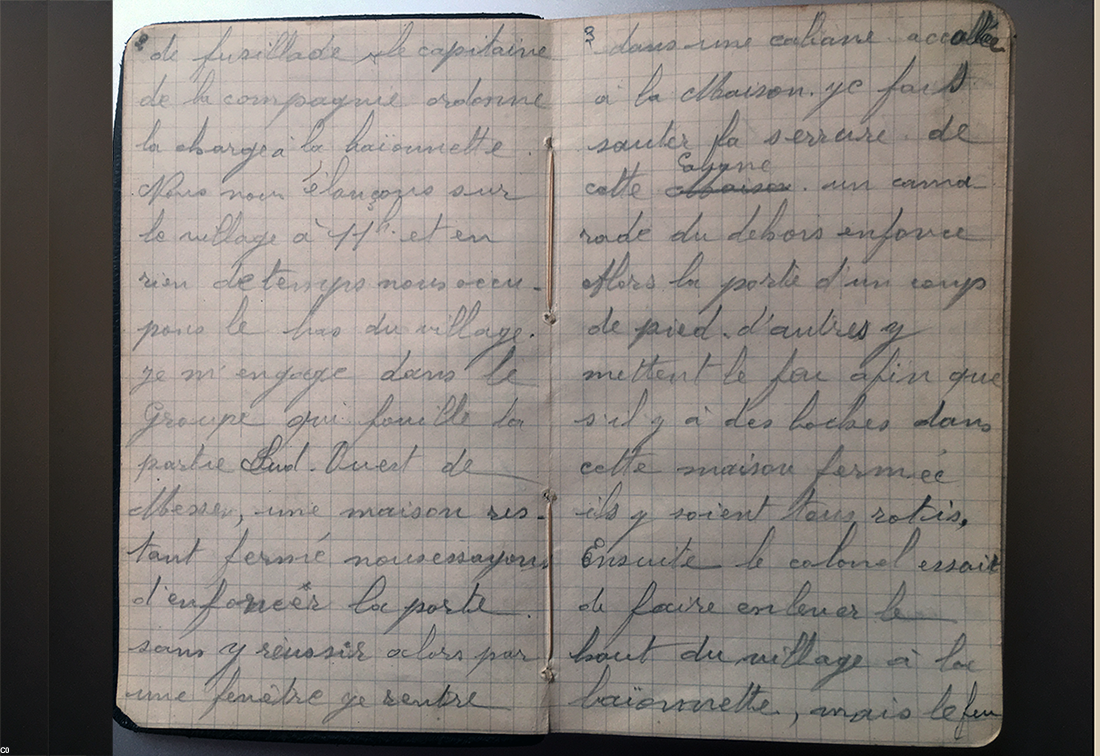 8 de fusillade, le capitaine
de la compagnie ordonne
la charge à la baïonnette.
Nous nous élançons sur
le village à 11h. et en
rien de temps nous occu-
pons le bas du village.
je m'engage dans le
Groupe qui fouille la
partie Sud-Ouest de
Messen, une maison res-
tant fermé nous essayons
d'enfoncer la porte
sans y réussir alors par
une fenêtre je rentre
9 dans une cabane accollée
à la Maison. je fait
sauter la serrure de
cette Cabane maison. un cama
rade du dehors enfonce
Alors la porte d'un coup
de pied. d'autres y
mettent le feu afin que
s'il y à des boches dans
cette maison fermée
ils y soient tous rotis,
Ensuite le colonel essait
de faire enlever le
haut du village à la
baïonnette, mais le feu